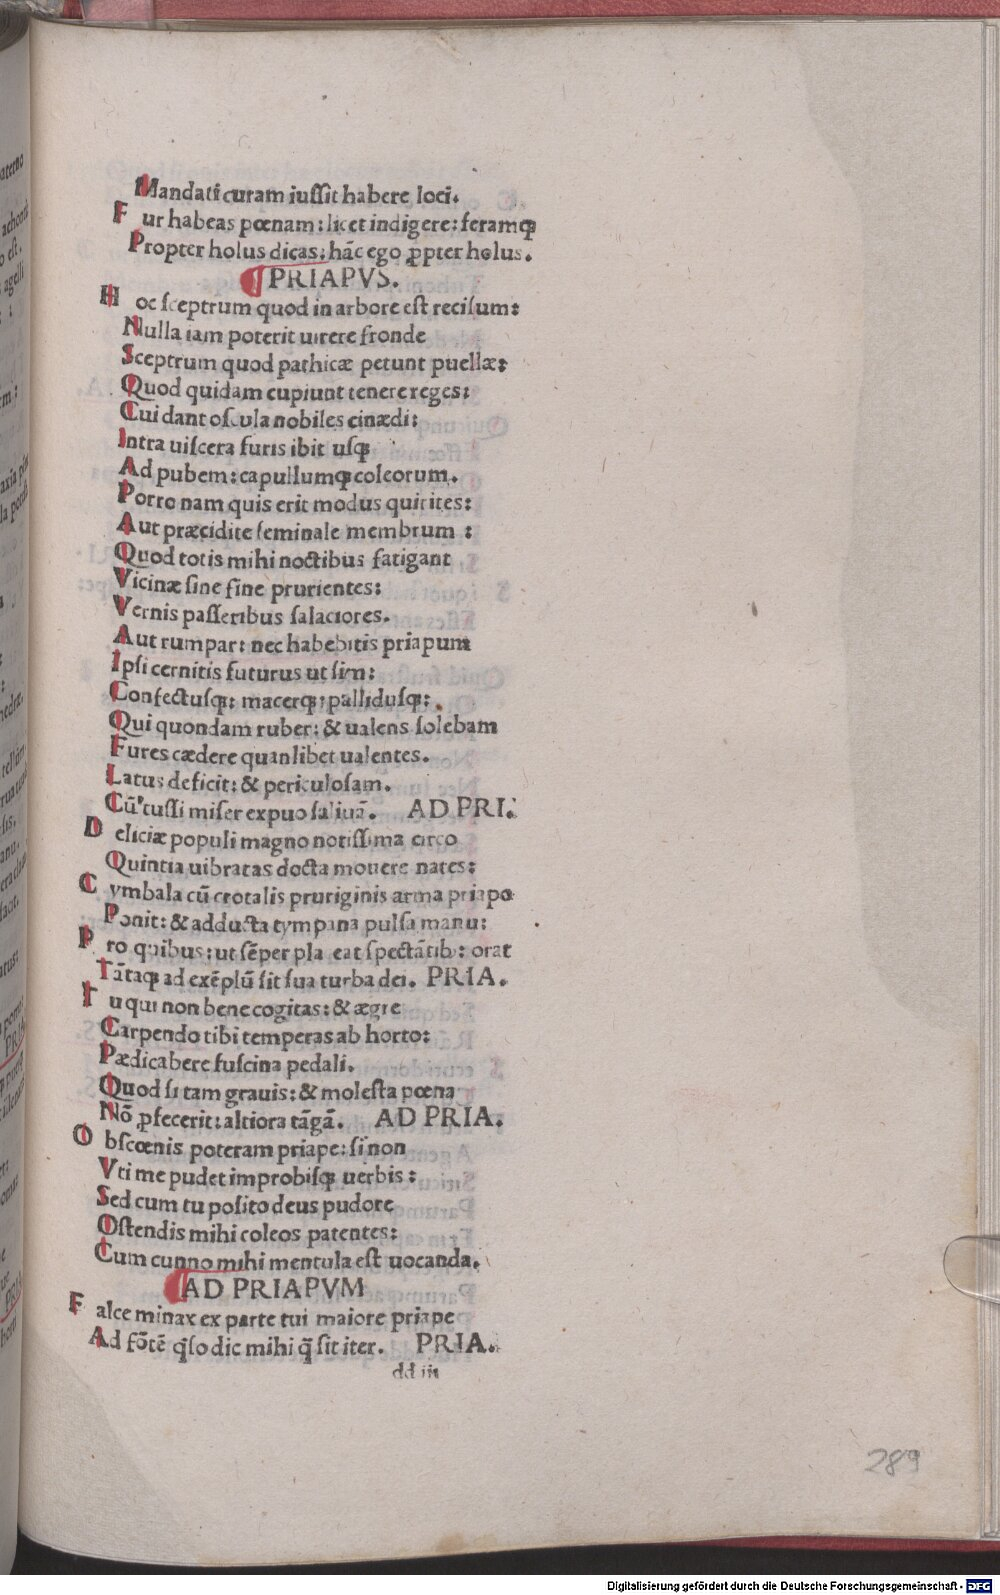 Mandati curam iussit habere loci.
F ur habeas pœnam: licet indigere: feramqꝫ
Propter holus dicas: hãc ego ꝓpter holus.
¶ PRIAPVS.
H oc sceptrum quod in arbore est recisum:
Nulla iam poterit uirere fronde
Sceptrum quod pathicæ petunt puellæ:
Quod quidam cupiunt tenere reges:
Cui dant oscula nobiles cinædi:
Intra uiscera furis ibit usqꝫ
Ad pubem: capullumqꝫ coleorum.
Porro nam quis erit modus quirites:
Aut præcidite seminale membrum :
Quod totis mihi noctibus fatigant
Vicinæ sine fine prurientes:
Vernis passeribus salaciores.
Aut rumpar: nec habebitis priapum
Ipsi cernitis futurus ut sim:
Confectusqꝫ: macerqꝫ: pallidusqꝫ:
Qui quondam ruber: & ualens solebam
Fures cædere quanlibet ualentes.
Latus deficit: & periculosam.
Cũ tussi miser expuo saliuã. AD PRI.
D eliciæ populi magno notissima circo
Quintia uibratas docta mouere nates:
C ymbala cũ crotalis pruriginis arma priapo
Ponit: & adducta tympana pulsa manu:
P ro quibus: ut sẽper pla eat spectãtib: orat
Tãtaqꝫ ad exẽplũ sit sua turba dei. PRIA.
T u qui non bene cogitas: & ægre
Carpendo tibi temperas ab horto:
Pædicabere fuscina pedali.
Quod si tam grauis: & molesta pœna
Nõ ꝓfecerit: altiora tãgã. AD PRIA.
O bscœnis poteram priape: si non
Vti me pudet improbisqꝫ uerbis:
Sed cum tu posito deus pudore
Ostendis mihi coleos patentes:
Cum cunno mihi mentula est uocanda.
¶ AD PRIAPVM
F alce minax ex parte tui maiore priape
Ad fõtẽ q̃so dic mihi q̃ sit iter. PRIA.
dd iii
289
Digitalisierung gefördert durch die Deutsche Forschungsgemeinschaft - DFG